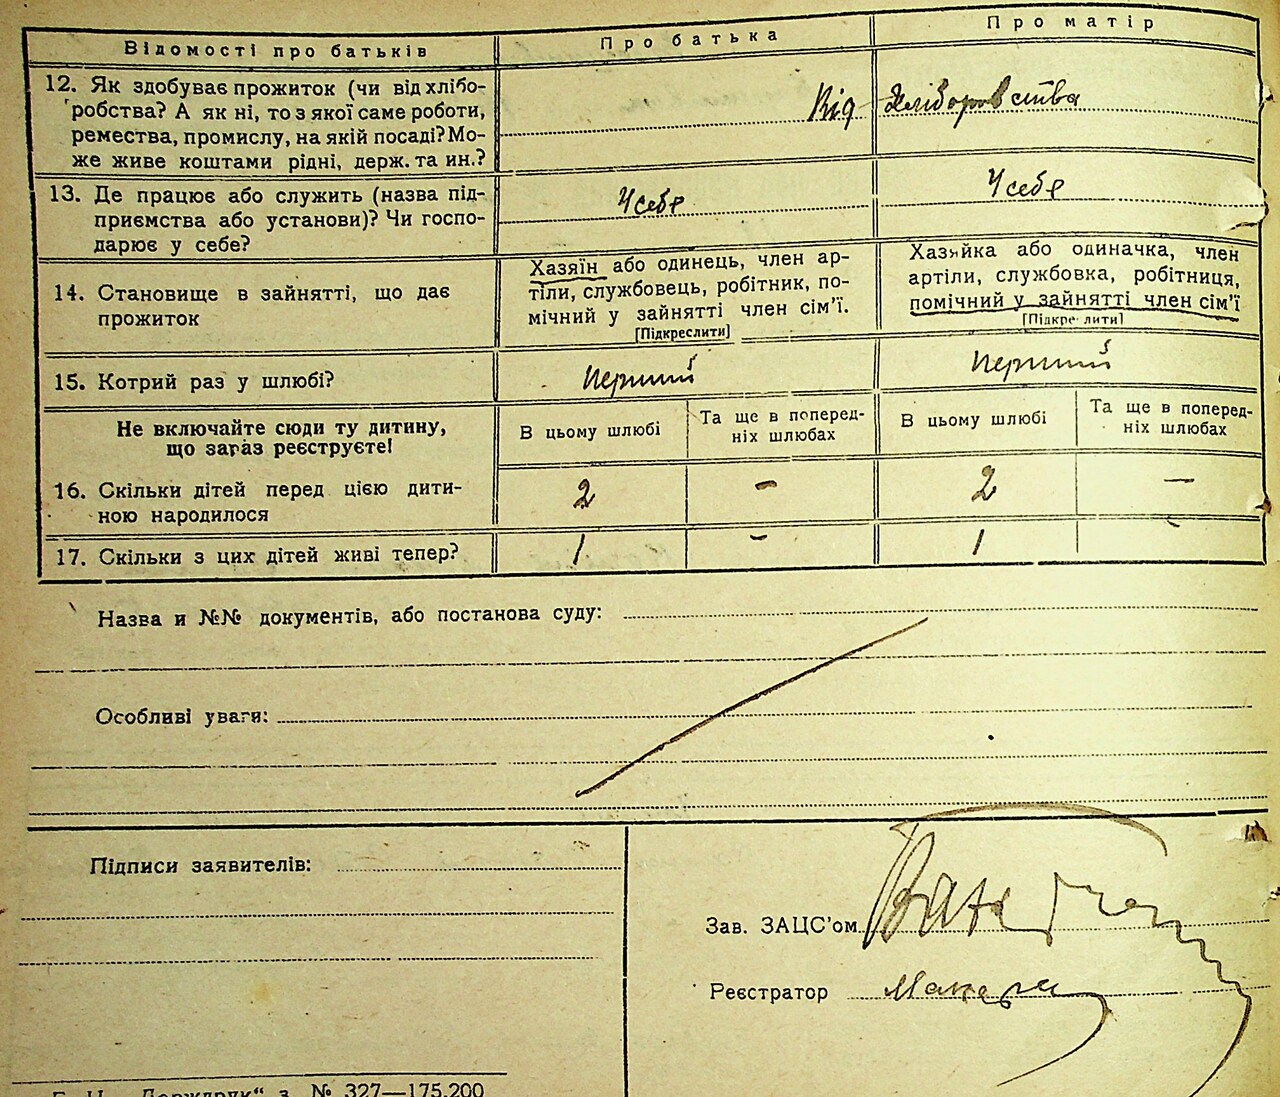 Відомості про батьків
Про батька
Про матір
12. Як здобуває прожиток (чи від хлібо-
робства? А як ні, то з якої саме роботи,
ремества, промислу, на якій посаді? Мо-
же живе коштами рідні, держ. та ин.?
Від Хліборобства
13. Де працює або служить (назва під-
приємства або установи)? Чи госпо-
дарює у себе?
У себе
У себе
14. Становище в зайнятті, що дає
прожиток
Хазяїн або одинець, член ар-
тіли, службовець, робітник, по-
мічний у зайнятті член сім'ї.
[Підкреслити]
Хазяйка або одиначка, член
артіли, службовка, робітниця,
помічний у зайнятті член сім'ї
[Підкреслити]
15. Котрий раз у шлюбі?
перший
перший
Не включайте сюди ту дитину,
що зараз реєструєте!
В цьому шлюбі
Та ще в поперед-
ніх шлюбах
В цьому шлюбі
Та ще в поперед-
ніх шлюбах
16. Скільки дітей перед цією дити-
ною народилося
2
-
2
-
17. Скільки з цих дітей живі тепер?
1
-
1
-
Назва и №№ документів, або постанова суду:
Особливі уваги:
Підписи заявителів:
Зав. ЗАЦС'ом
Реєстратор
Держдрук" з. № 327—175.200